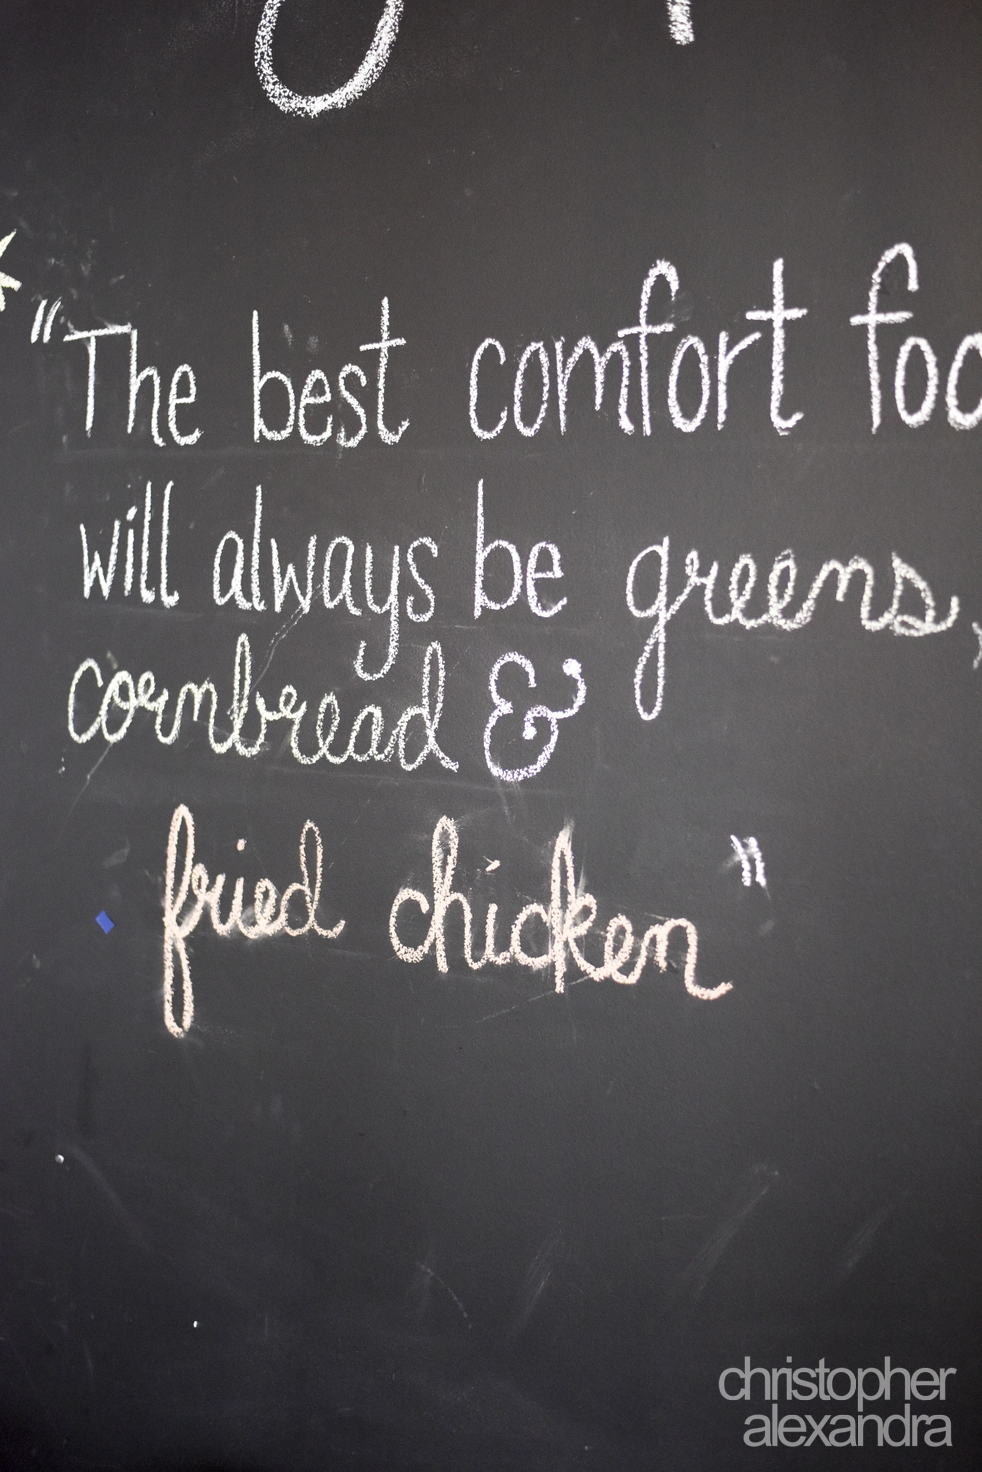 "The best comfort foo
will always be greens,
cornbread &
fried chicken"
christopher
alexandra